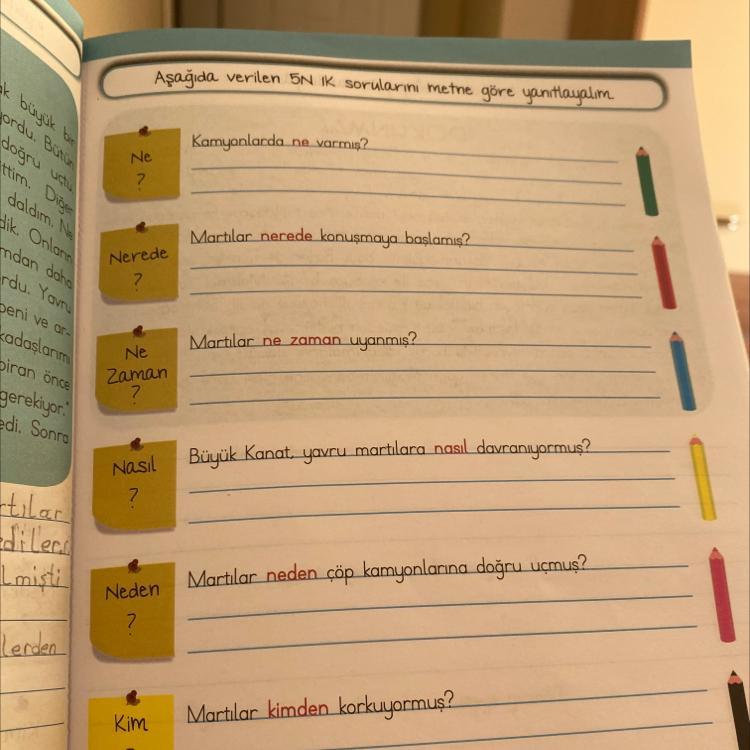 k büyük bir
yordu. Bütün
doğru uçtu
ttim. Diğer
daldım. Ne
dik. Onların
mdan daha
rdu. Yavru
beni ve ar-
kadaşlarımı
biran önce
gerekiyor."
edi. Sonra
rtılar
ediler.
lmişti
lerden
Aşağıda verilen 5N 1K sorularını metne göre yanıtlayalım.
Ne
?
Kamyonlarda ne varmış?
Nerede
?
Martılar nerede konuşmaya başlamış?
Ne
Zaman
?
Martılar ne zaman uyanmış?
Nasıl
?
Büyük Kanat, yavru martılara nasıl davranıyormuş?
Neden
?
Martılar neden çöp kamyonlarına doğru uçmuş?
Kim
Martılar kimden korkuyormuş?